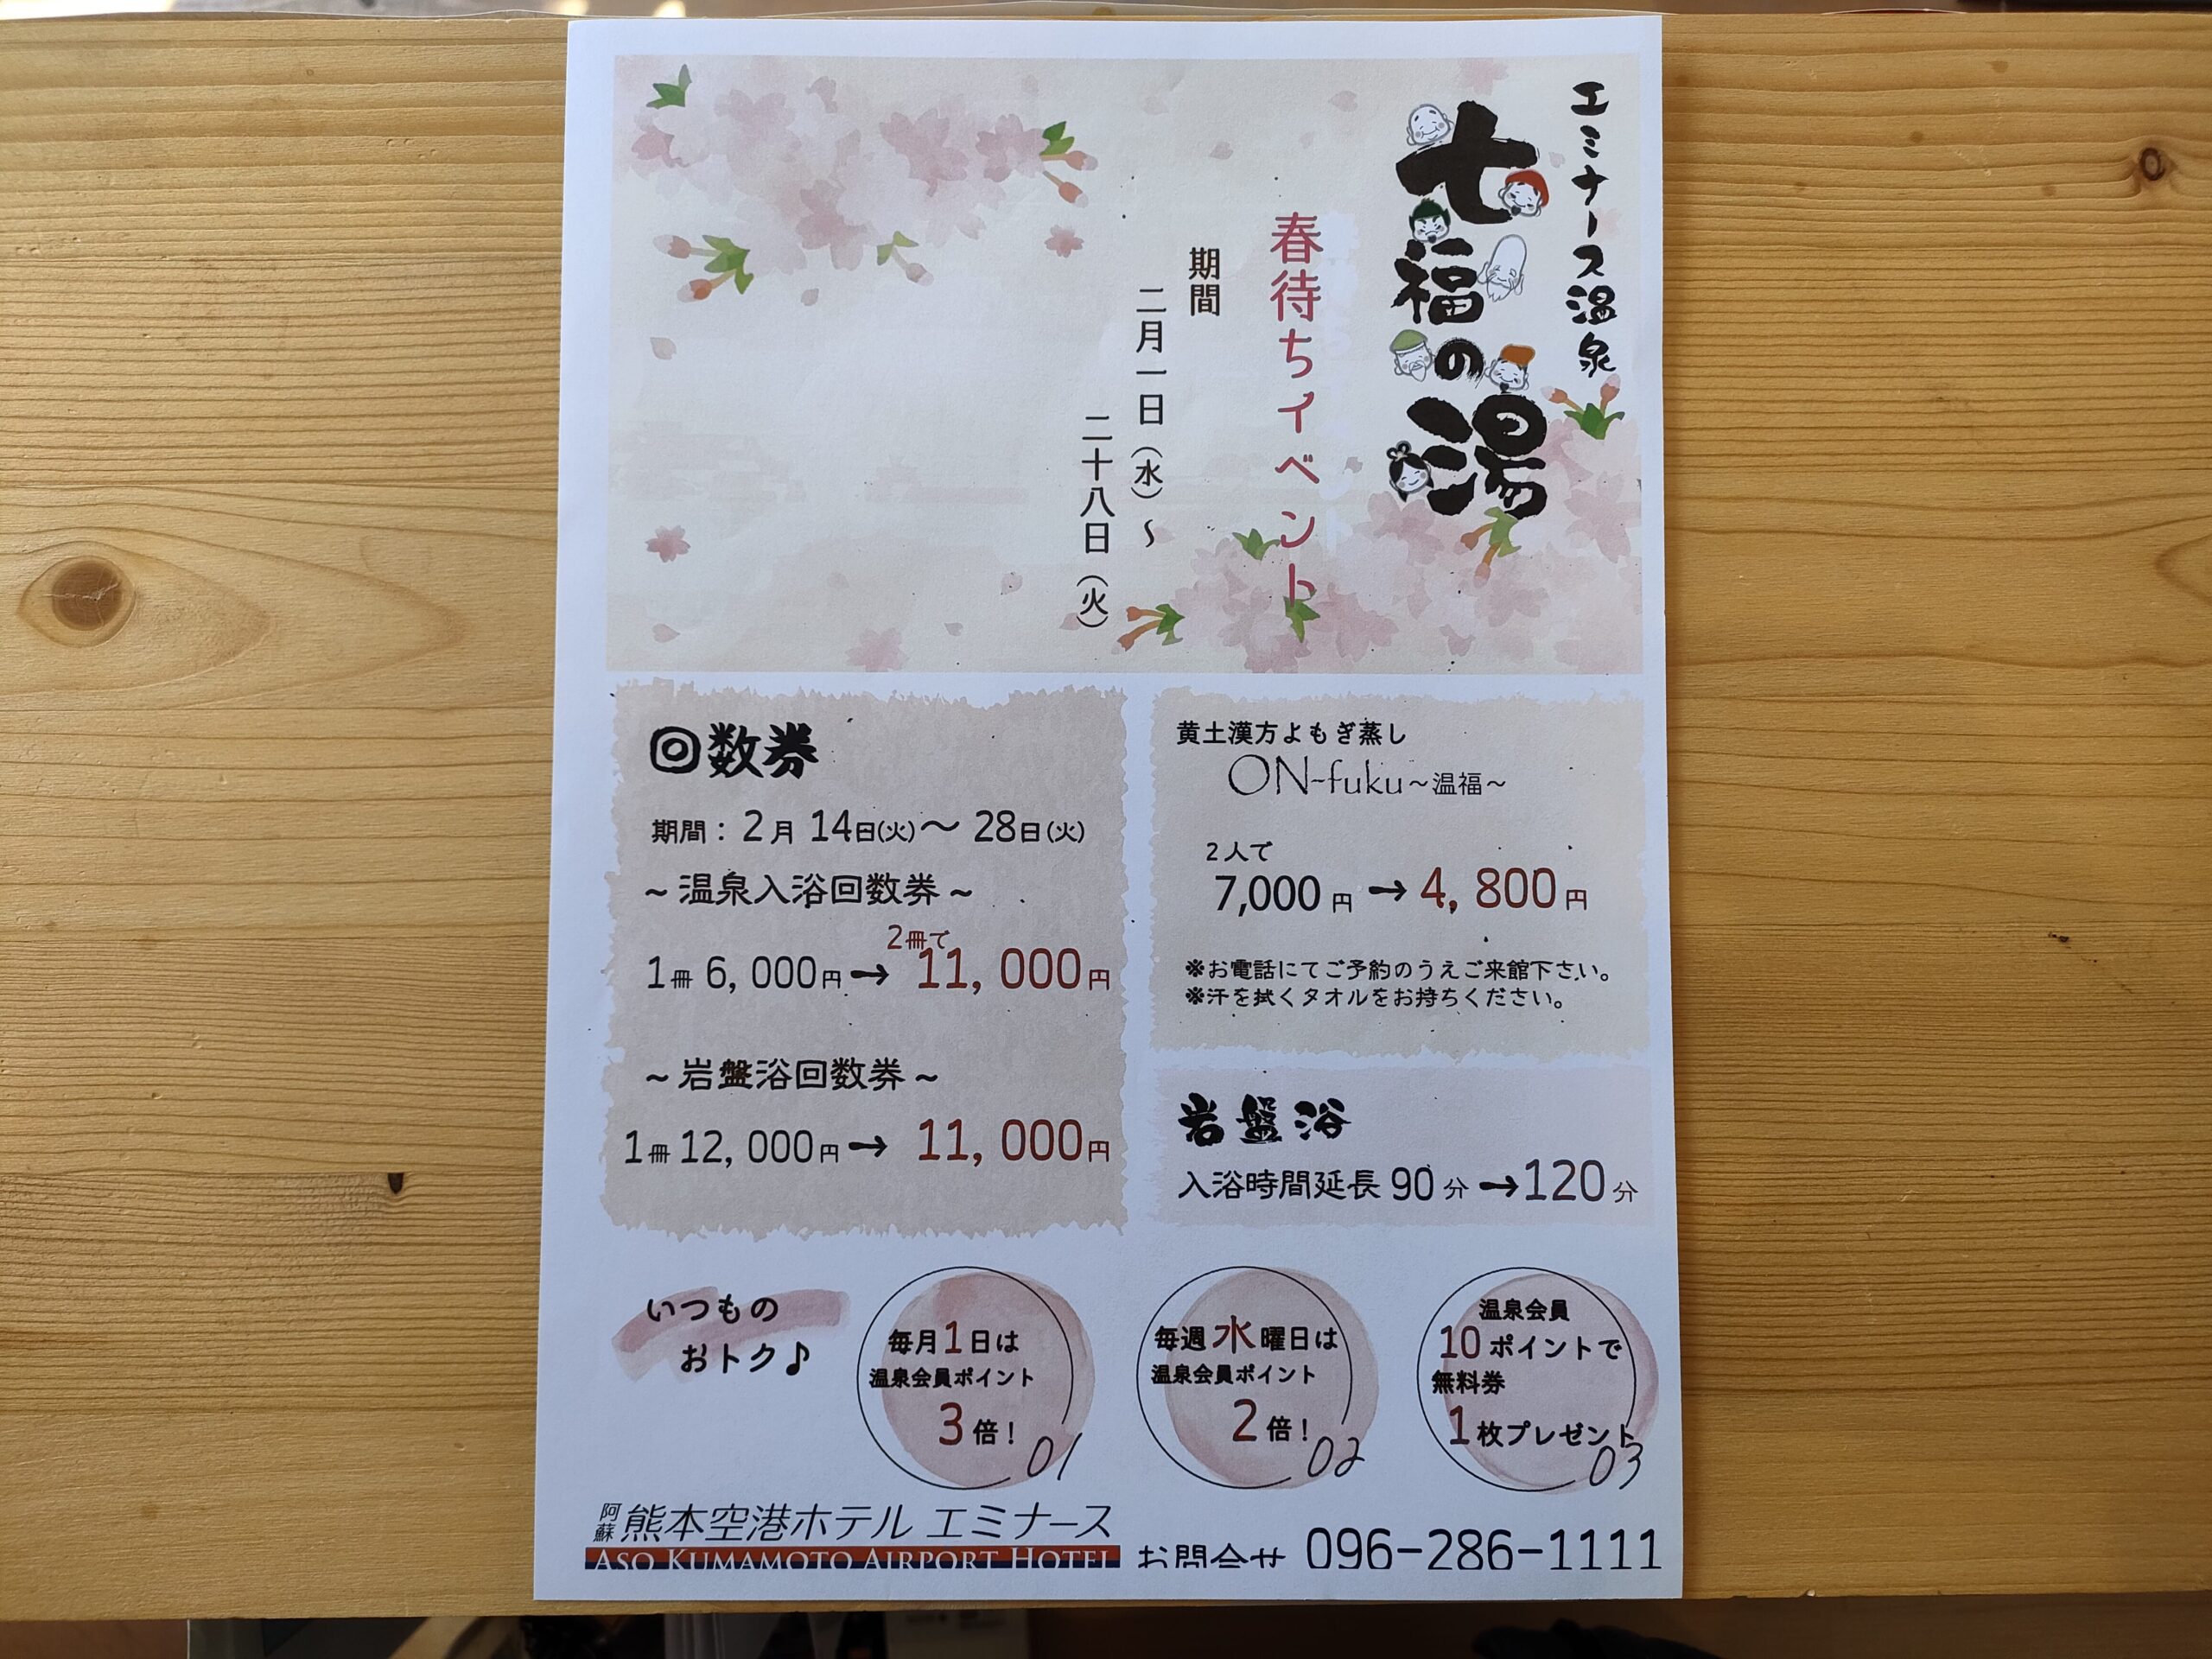 エミナース温泉
七福の湯
春待ちイベント
期間
二月一日(水)～
二十八日(火)
回数券
期間：2月14日(火)～28日(火)
～温泉入浴回数券～
2冊で
1冊6,000円→11,000円
～岩盤浴回数券～
1冊12,000円→11,000円
黄土漢方よもぎ蒸し
ON-fuku～温福～
2人で
7,000円→4,800円
※お電話にてご予約のうえご来館下さい。
※汗を拭くタオルをお持ちください。
岩盤浴
入浴時間延長90分→120分
いつもの
おトク♪
毎月1日は
温泉会員ポイント
3倍！
01
毎週水曜日は
温泉会員ポイント
2倍！
02
温泉会員
10ポイントで
無料券
1枚プレゼント
03
阿蘇熊本空港ホテル エミナース
ASO KUMAMOTO AIRPORT HOTEL
お問合せ 096-286-1111